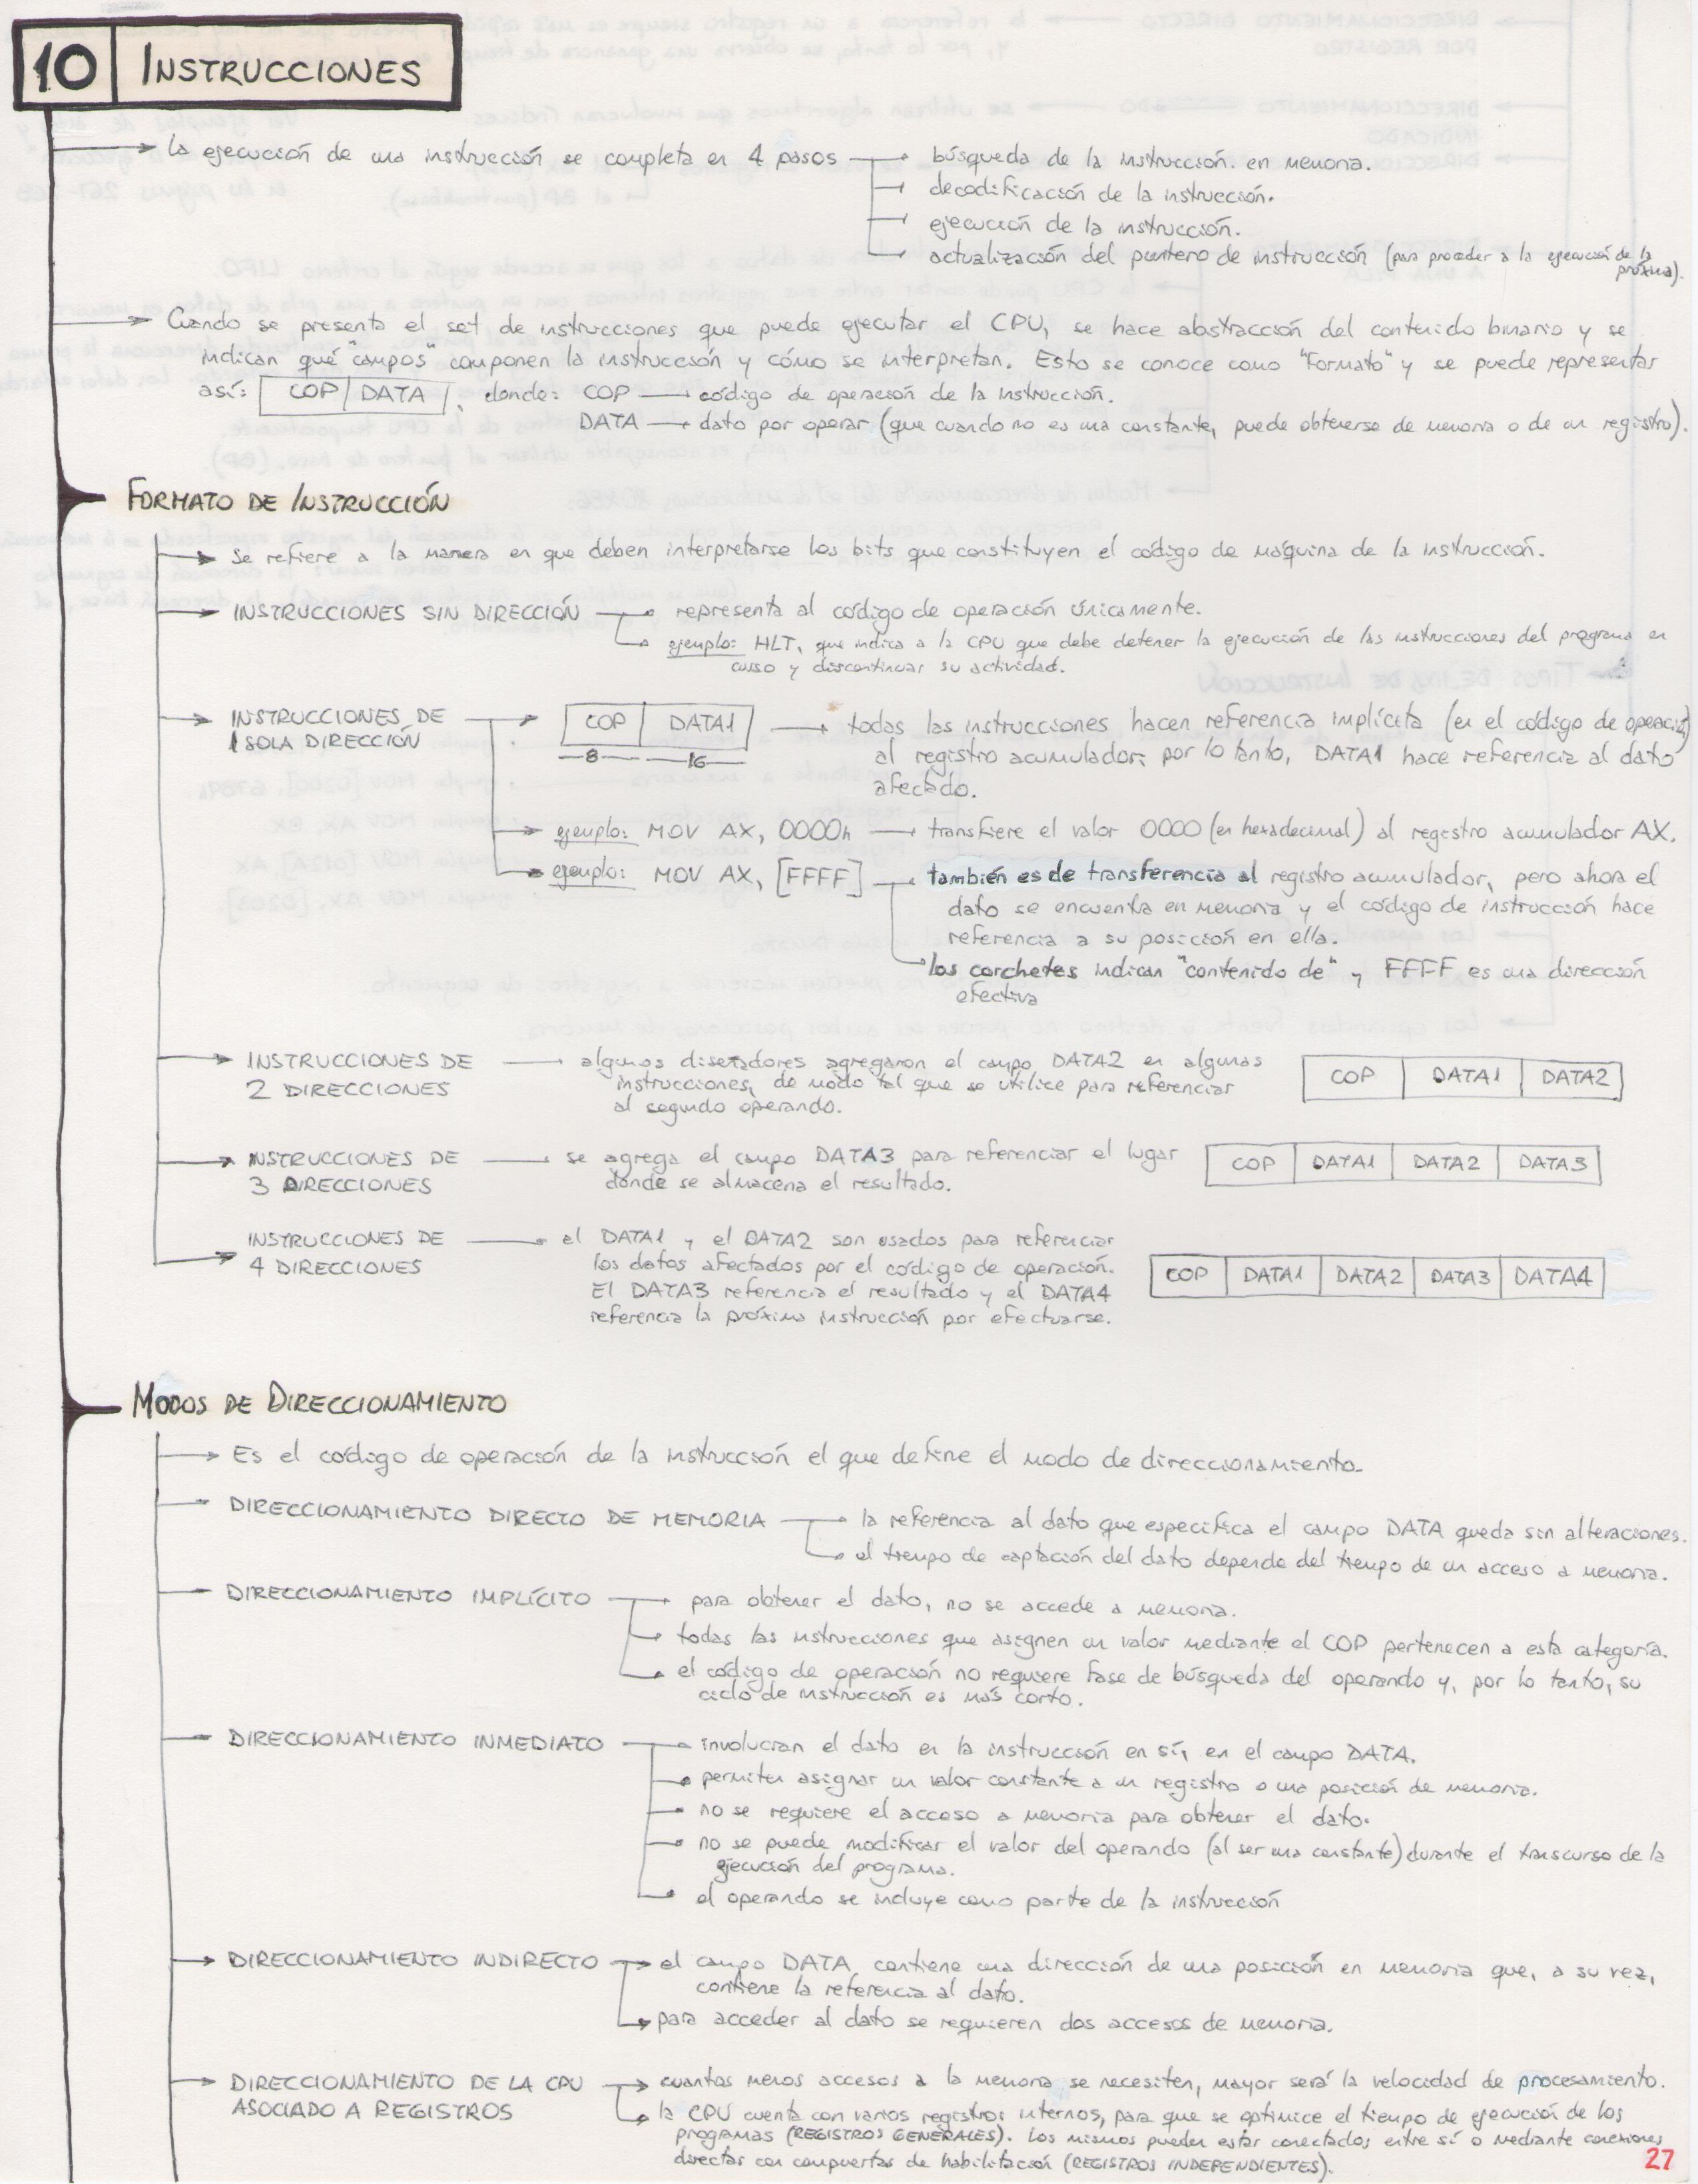 10 INSTRUCCIONES
la ejecución de una instrucción se completa en 4 pasos
búsqueda de la instrucción en memoria.
decodificación de la instrucción.
ejecución de la instrucción.
actualización del puntero de instrucción (para proceder a la ejecución de la
próxima).
Cuando se presenta el set de instrucciones que puede ejecutar el CPU, se hace abstracción del contenido binario y se
indican qué "campos" componen la instrucción y cómo se interpretan. Esto se conoce como "Formato" y se puede representar
así: COP DATA, donde: COP código de operación de la instrucción.
DATA dato por operar (que cuando no es una constante, puede obtenerse de memoria o de un registro).
FORMATO DE INSTRUCCIÓN
Se refiere a la manera en que deben interpretarse los bits que constituyen el código de máquina de la instrucción.
INSTRUCCIONES SIN DIRECCIÓN representa al código de operación únicamente.
ejemplo: HLT, que indica a la CPU que debe detener la ejecución de las instrucciones del programa en
curso y discontinuar su actividad.
INSTRUCCIONES DE
1 SOLA DIRECCIÓN
COP DATA1
8 16
todas las instrucciones hacen referencia implícita (en el código de operación)
al registro acumulador; por lo tanto, DATA1 hace referencia al dato
afectado.
ejemplo: MOV AX, 0000h transfiere el valor 0000 (en hexadecimal) al registro acumulador AX.
ejemplo: MOV AX, [FFFF] también es de transferencia al registro acumulador, pero ahora el
dato se encuentra en memoria y el código de instrucción hace
referencia a su posición en ella.
los corchetes indican "contenido de" y FFFF es una dirección
efectiva
INSTRUCCIONES DE
2 DIRECCIONES
algunos diseñadores agregaron el campo DATA2 en algunas
instrucciones, de modo tal que se utilice para referenciar
al segundo operando.
COP DATA1 DATA2
INSTRUCCIONES DE
3 DIRECCIONES
se agrega el campo DATA3 para referenciar el lugar
donde se almacena el resultado.
COP DATA1 DATA2 DATA3
INSTRUCCIONES DE
4 DIRECCIONES
el DATA1 y el DATA2 son usados para referenciar
los datos afectados por el código de operación.
El DATA3 referencia el resultado y el DATA4
referencia la próxima instrucción por efectuarse.
COP DATA1 DATA2 DATA3 DATA4
MODOS DE DIRECCIONAMIENTO
Es el código de operación de la instrucción el que define el modo de direccionamiento.
DIRECCIONAMIENTO DIRECTO DE MEMORIA la referencia al dato que especifica el campo DATA queda sin alteraciones.
el tiempo de captación del dato depende del tiempo de un acceso a memoria.
DIRECCIONAMIENTO IMPLÍCITO para obtener el dato, no se accede a memoria.
todas las instrucciones que asignen un valor mediante el COP pertenecen a esta categoría.
el código de operación no requiere fase de búsqueda del operando y, por lo tanto, su
ciclo de instrucción es más corto.
DIRECCIONAMIENTO INMEDIATO involucran el dato en la instrucción en sí, en el campo DATA.
permiten asignar un valor constante a un registro o una posición de memoria.
no se requiere el acceso a memoria para obtener el dato.
no se puede modificar el valor del operando (al ser una constante) durante el transcurso de la
ejecución del programa.
el operando se incluye como parte de la instrucción
DIRECCIONAMIENTO INDIRECTO el campo DATA contiene una dirección de una posición en memoria que, a su vez,
contiene la referencia al dato.
para acceder al dato se requieren dos accesos de memoria.
DIRECCIONAMIENTO DE LA CPU
ASOCIADO A REGISTROS
cuantos menos accesos a la memoria se necesiten, mayor será la velocidad de procesamiento.
la CPU cuenta con varios registros internos, para que se optimice el tiempo de ejecución de los
programas (REGISTROS GENERALES). Los mismos pueden estar conectados entre sí o mediante conexiones
directas con compuertas de habilitación (REGISTROS INDEPENDIENTES).
27